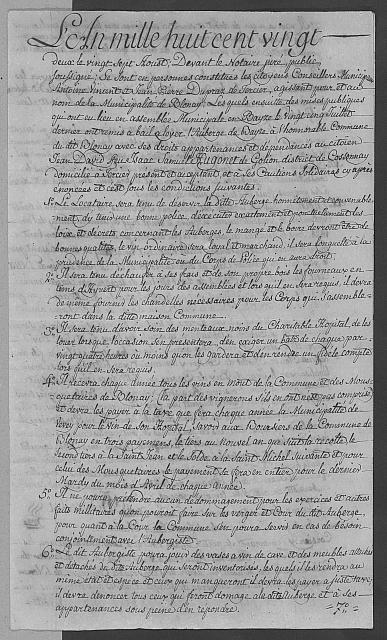 L'An mille huit cent vingt
deux le vingt sept Aoust, Devant le Notaire juré, public,
soussigné; Se sont en personnes constitués les citoyens Conseillers Municipaux
Antoine Vincent et Jean Pierre Dupraz de agissant pour et au
nom de la Municipalité de Blonay; Lesquels ensuite des mises publiques
qui ont eu lieu en assemblée Municipale en Bayse le vingt cinq Juillet
dernier ont remis à bail à loyer l'Auberge de Bayse à l'honorable Commune
du dit Blonay avec ses droits appartenances et dépendances au citoyen
Jean David Isaac Samuel Gugonet de district de Cossonay
domicilié à present et aceptant, et à Ses Cautions Solidaires cy après
enoncées et c'est sous les conditions suivantes.
1.º Le Locataire sera tenu de deservir la ditte Auberge honnêtement et convenable-
ment, d'y tenir une bonne police, d'executer exactement et ponctuellement les
loix et decrets concernant les Auberges, le manger et le boire devront être de
bonnes qualités, le vin ordinaire sera loyal et marchand, il sera
prudence de la Municipalité ou du Corps de Police qui en aura droit.
2.º Il sera tenu d'echaufer à ses frais et de son propre bois les fourneaux en
tems d'hyvert pour les jours des assemblées et lors qu'il en sera requis, il devra
de même fournir les chandelles nécessaires pour les Corps qui s'assemble-
ront dans la ditte maison Commune.
3.º Il sera tenu d'avoir soin des du Charitable Hôpital, de les
louer lorsque l'occasion s'en presentera, d'en exiger un batz de chaque par
vingt quatre heures ou moins qu'on les gardera et d'en rendre un fidele compte
lors qu'il en sera requis.
4.º Il recevra chaque année tous les vins en moût de la Commune et des Mous-
quetaires de Blonay, (la part des vignerons s'ils en ont n'est pas comprise)
et devra les payer à la taxe que fera chaque année la Municipalité de
Vevey pour le vin de son Hôpital, savoir aux Boursiers de la Commune de
Blonay en trois payemens, le tiers au Nouvel an qui suit la recolte, le
second tiers à la Saint Jean et le solde à la Saint Michel suivante et pour
celui des Mousquetaires le payement se fera en entier pour le dernier
Mardy du mois d'Avril de chaque année.
5.º Il ne pourra prétendre aucun dédommagement pour les exercices et autres
faits militaires qu'on pourroit faire sur les verger et Cour du dit Auberge,
pour quant à la Cour la Commune s'en pourra servir en cas de besoin
conjointement avec l'Aubergiste.
6.º Le dit Aubergiste pourra jouir des vases à vin de cave et des meubles attachés
et détachés du dite Auberge, qui seront inventorisés, les quels il les rendra au
même état et espece et ceux qui manqueront il devra les payer à juste taxe,
il devra denoncer tous ceux qui feront domage à la dite Auberge et à ses
appartenances sous peine d'en repondre.